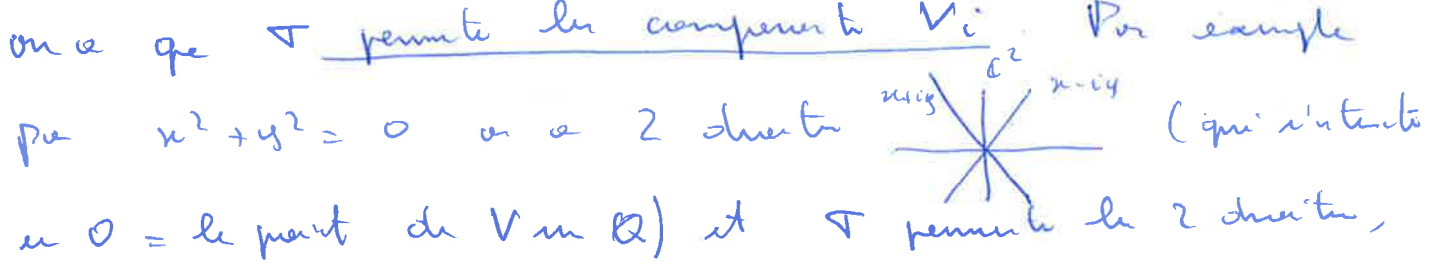 on a que σ permute les composantes Vi. Par exemple
C²
x+iy
x-iy
par x² + y² = 0 on a 2 droites (qui s'intersectent
en 0 = le point de V sur Q) et σ permute les 2 droites,